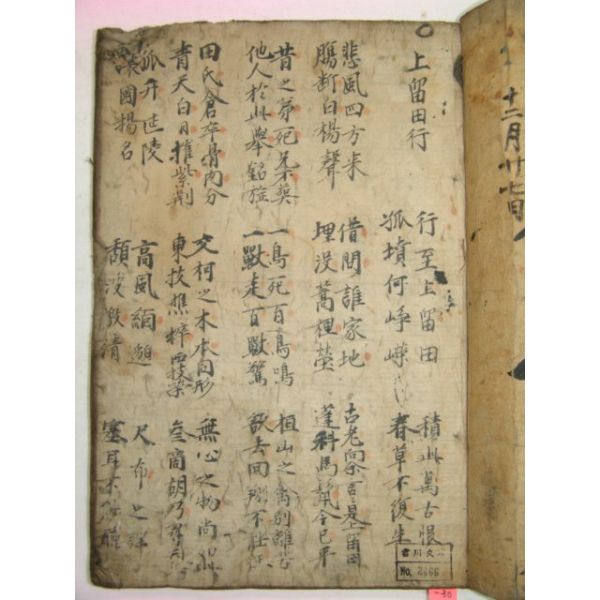 十二月廿七日
上留田行
行至上留田
孤墳何崢嶸
積此萬古恨
春草不復生
悲風四方来
腸断白楊聲
借問誰家地
埋没蒿裡塋
古老向余言是上留田
蓬科馬鬣今已平
昔之弟死兄不葵
他人於此舉銘旌
一鳥死百鳥鳴
一獸走百獸驚
桓山之禽別離苦
欲去回翔不
田氏倉卒骨肉分
青天白日摧紫荊
交柯之木本同形
東枝憔悴西枝榮
無心之物尚如此
參商胡乃尋天
孤竹延陵
讓國揚名
高風緬邈
頹波激清
尺布之謠
塞耳不
No.
-30